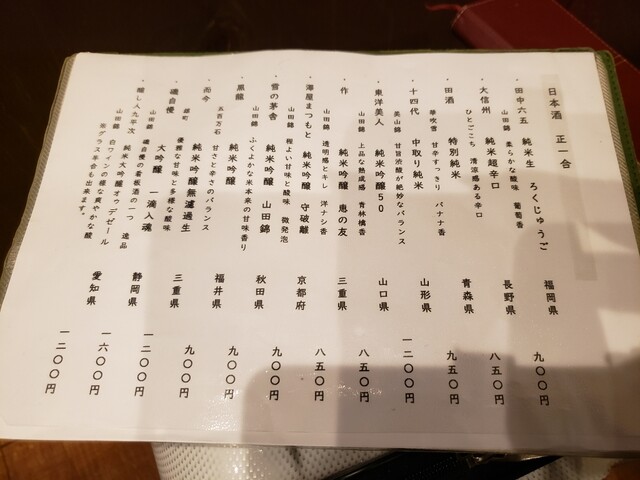 日本酒 正一合
・田中六五 純米生 ろくじゅうご 福岡県 九〇〇円
山田錦 柔らかな酸味 葡萄香
・大信州 純米超辛口 長野県 八五〇円
ひとごこち 清涼感ある辛口
・田酒 特別純米 青森県 九五〇円
華吹雪 甘辛すっきり バナナ香
・十四代 中取り純米 山形県 一二〇〇円
美山錦 甘旨渋酸が絶妙なバランス
・東洋美人 純米吟醸50 山口県 八五〇円
山田錦 上品な熟成感 青林檎香
・作 純米吟醸 恵の友 三重県 八五〇円
山田錦 透明感とキレ 洋ナシ香
・澤屋まつもと 純米吟醸 守破離 京都府 九〇〇円
山田錦 程よい甘味と酸味 微発泡
・雪の茅舎 純米吟醸 山田錦 秋田県 九〇〇円
山田錦 ふくよかな米本来の甘味香り
・黒龍 純米吟醸 福井県 九〇〇円
五百万石 甘さと辛さのバランス
・而今 純米吟醸無濾過生 三重県 一二〇〇円
雄町 優雅な甘味と多様な酸味
・磯自慢 大吟醸 一滴入魂 静岡県 一六〇〇円
山田錦 磯自慢の看板酒の一つ 逸品
・醸し人九平次 純米大吟醸オゥデゼール 愛知県 一二〇〇円
山田錦 白ワインの様な爽やかな酸
※グラス半合も出来ます。